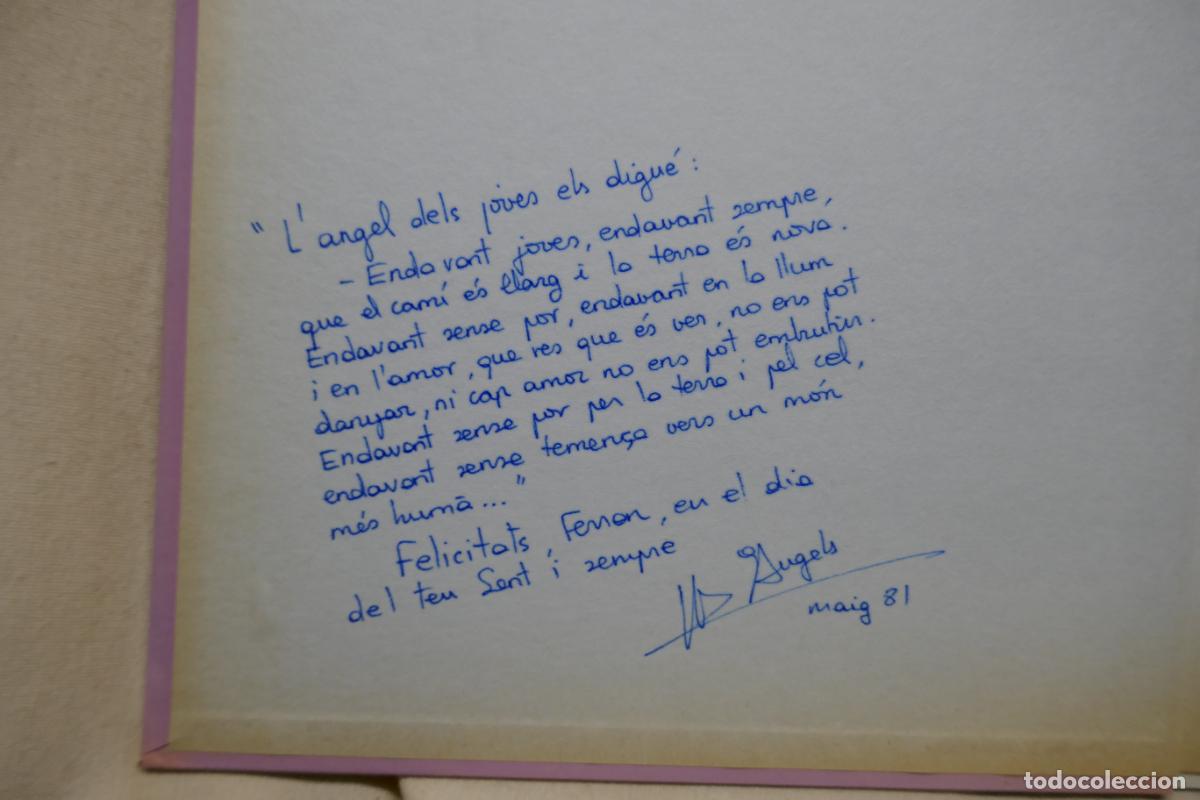 "L'angel dels joves els digué:
- Endavant joves, endavant sempre,
que el camí és llarg i la terra és nova.
Endavant sense por, endavant en la llum
i en l'amor, que res que és ver, no ens pot
danyar, ni cap amor no ens pot embrutir.
Endavant sense por per la terra i pel cel,
endavant sense temença vers un món
més humà..."
Felicitats, Ferran, en el dia
del teu Sant i sempre
Mª Àngels
maig 81
todocoleccion